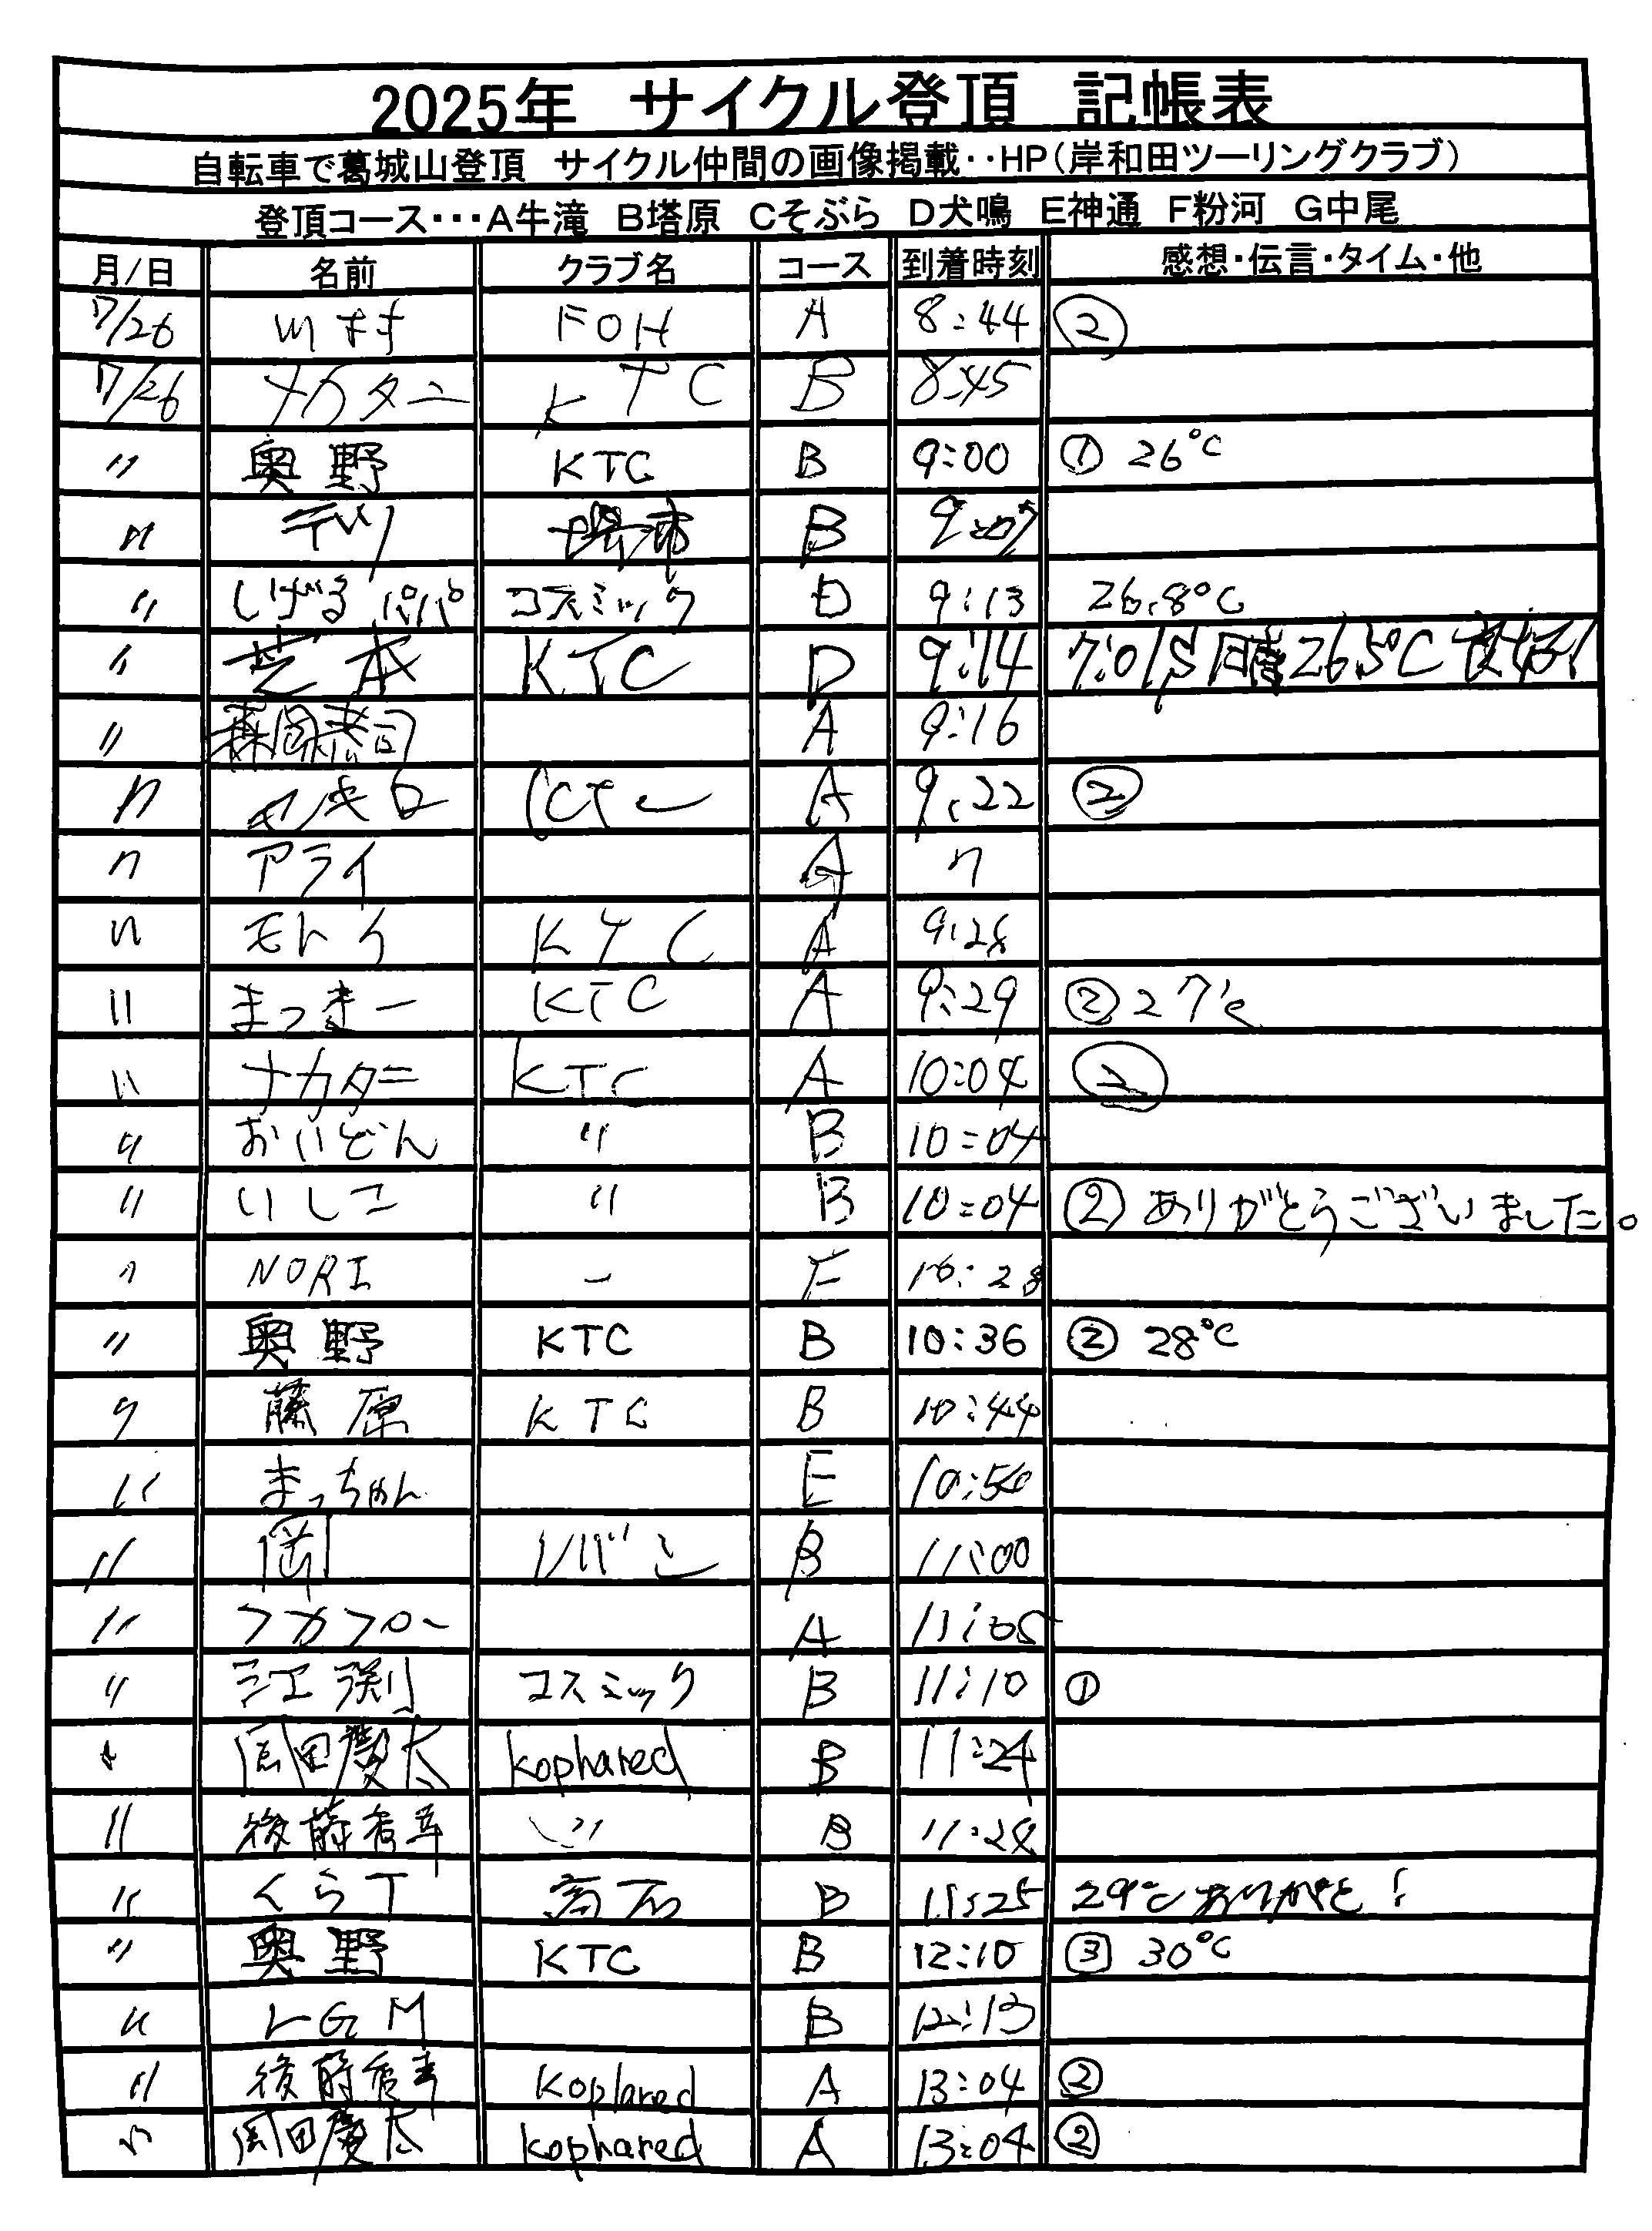 2025年 サイクル登頂 記帳表
自転車で葛城山登頂 サイクル仲間の画像掲載‥HP(岸和田ツーリングクラブ)
登頂コース･･･A牛滝 B塔原 Cそぶら D犬鳴 E神通 F粉河 G中尾
月/日 名前 クラブ名 コース 到着時刻 感想・伝言・タイム・他
7/26 FOH A 8:44 ②
7/26 ナカタニ KTC B 8:45
〃 奥野 KTC B 9:00 ① 26℃
〃 デツ 堺市 B 9:07
〃 しげるパパ コスミック D 9:13 26.8℃
〃 芝本 KTC D 9:14 7:01 26.5℃
〃 森岡恭司 A 9:16
〃 マキロ KTC A 9:22 ②
〃 アライ A 〃
〃 モトイ KTC A 9:28
〃 まっきー KTC A 9:29 ② 27℃
〃 ナカタニ KTC A 10:04 ②
〃 おいどん 〃 B 10:04
〃 いしこ 〃 B 10:04 ② ありがとうございました。
〃 NORI ー F 10:28
〃 奥野 KTC B 10:36 ② 28℃
〃 藤原 KTC B 10:44
〃 まっちゃん E 10:50
〃 岡 リバン B 11:00
〃 フカフロー A 11:05
〃 江渕 コスミック B 11:10 ①
〃 岡田慶太 kophared B 11:24
〃 後藤 〃 B 11:28
〃 くらT 高石 B 11:25 29℃ ありがと!
〃 奥野 KTC B 12:10 ③ 30℃
〃 LGM B 12:13
〃 後藤 kophared A 13:04 ②
〃 岡田慶太 kophared A 13:04 ②